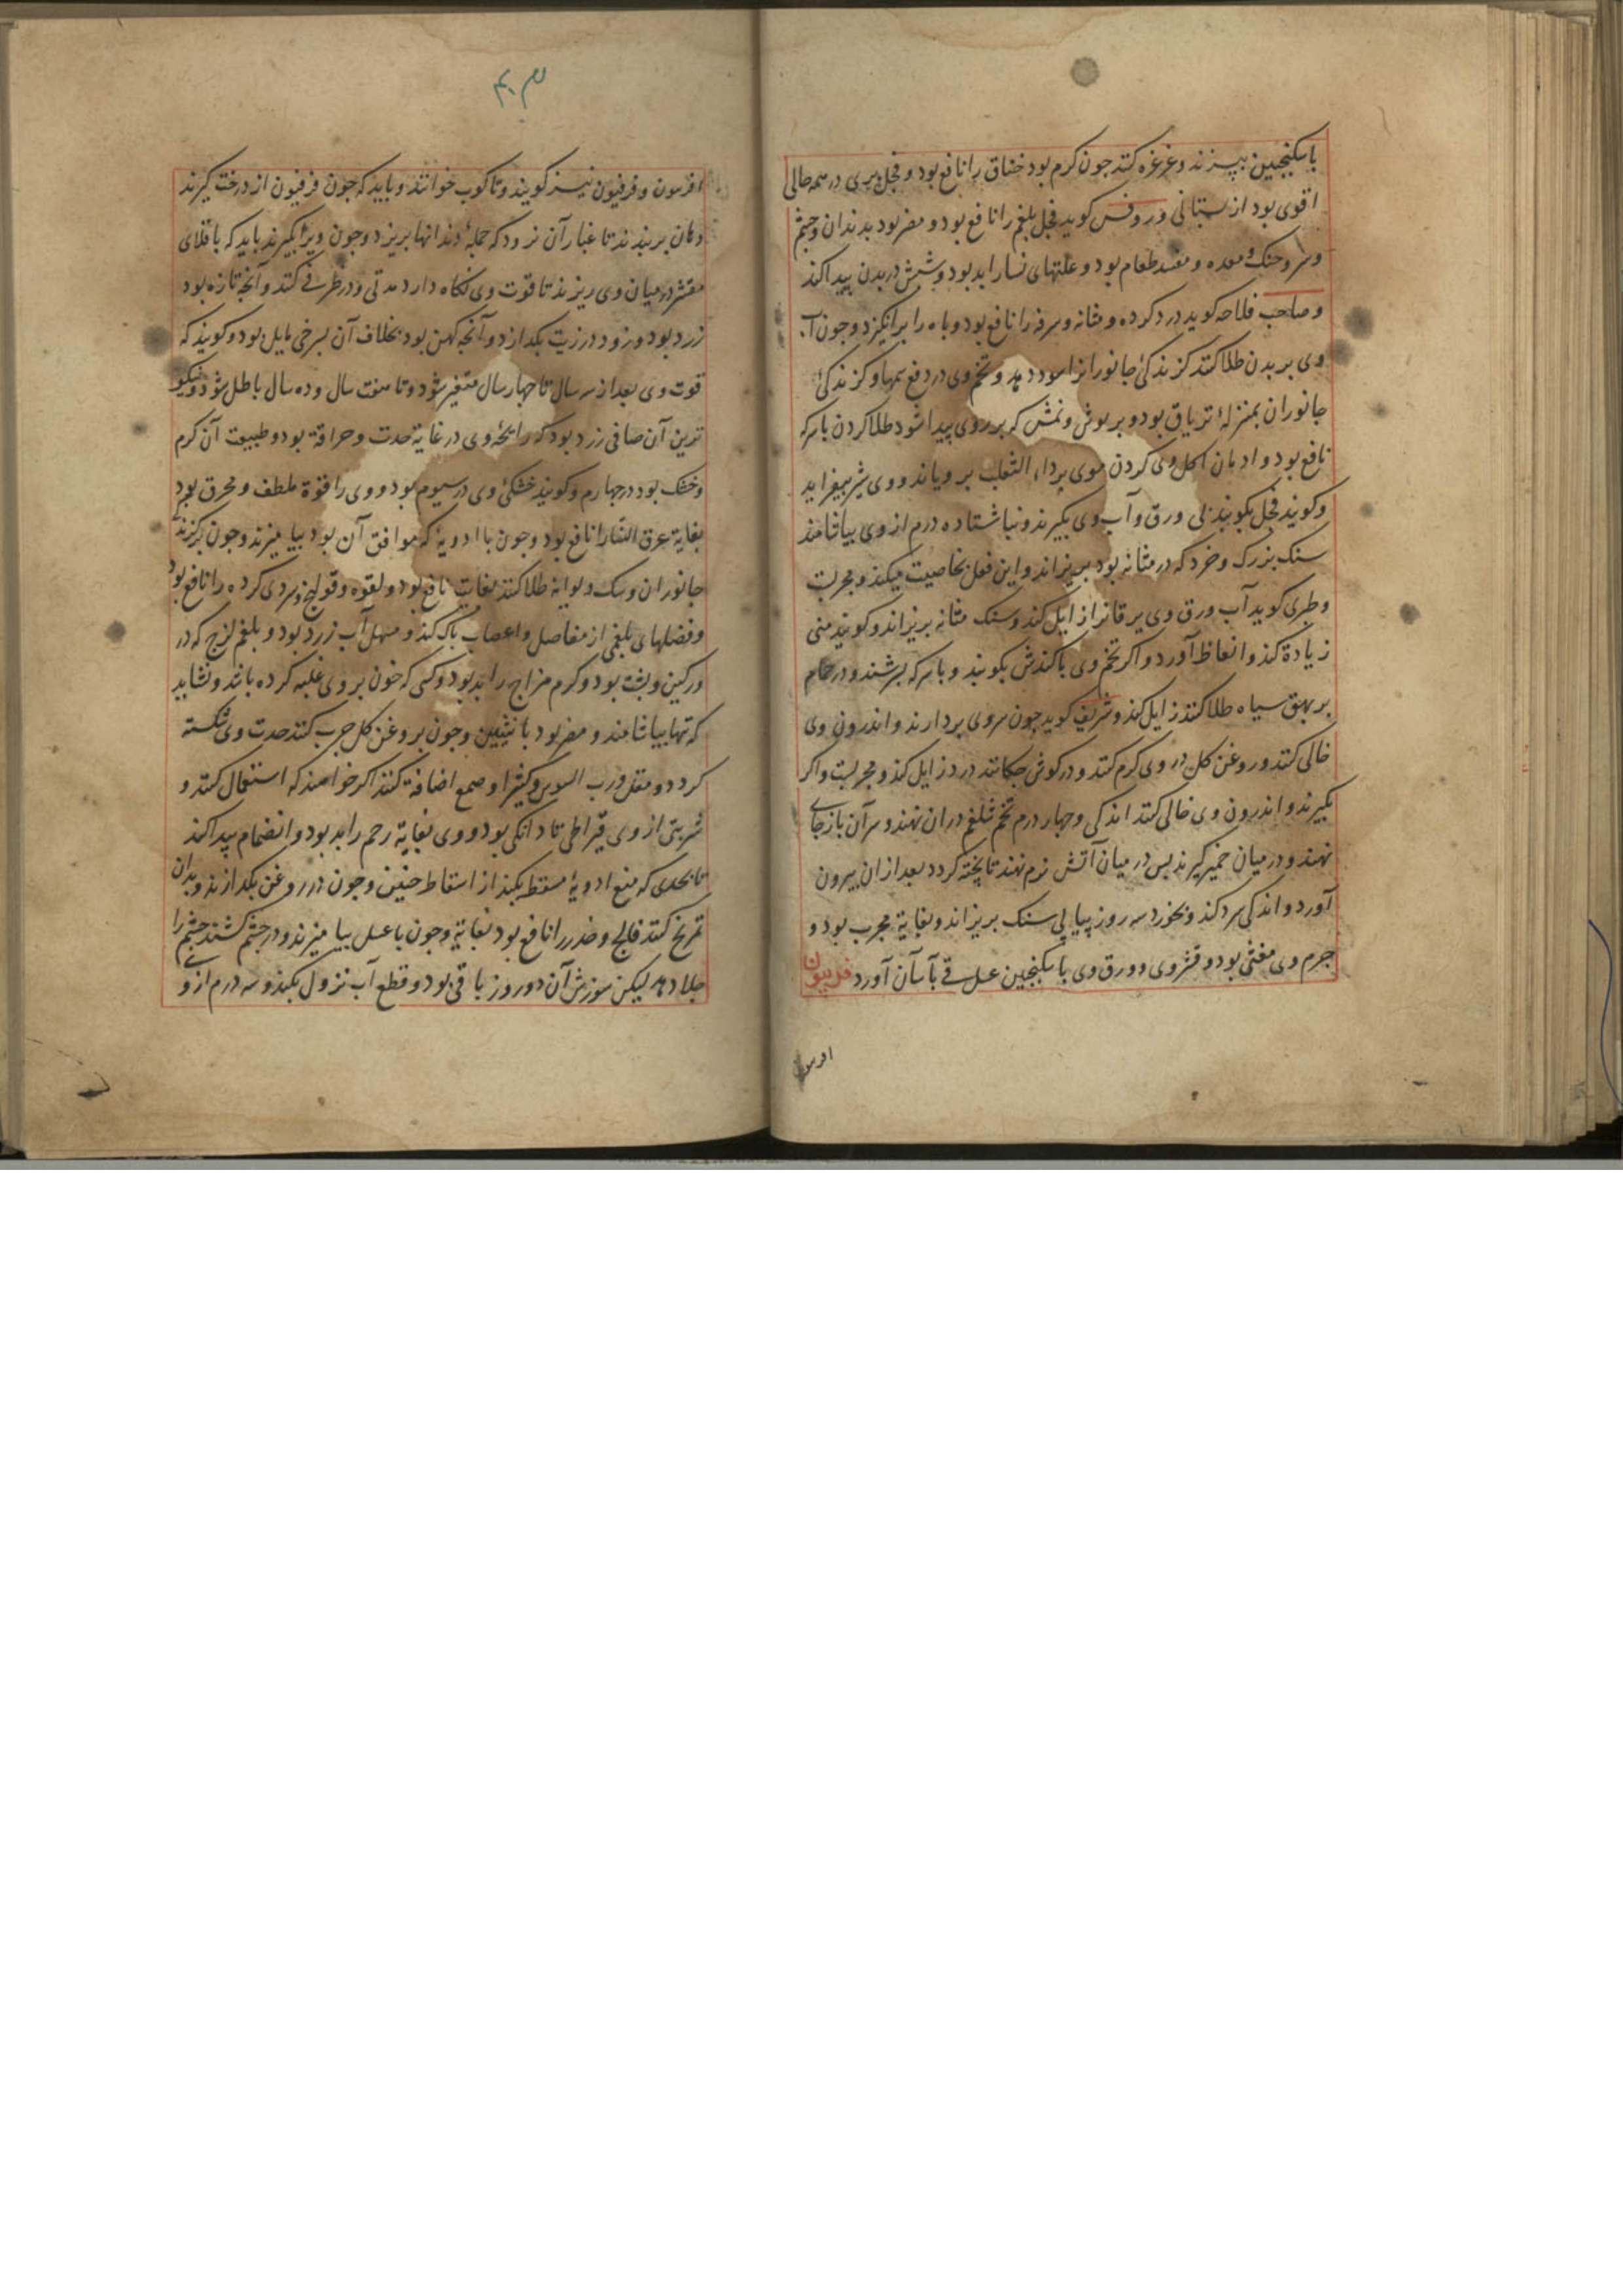 باسکنجبین بپزند و غرغره کنند جون کرم بود خناق را نافع بود و فجل بری در همه حالی
اقوی بود از بستانی و روفس کوید فجل بلغم را نافع بود و مضر بود بدندان و جشم
و سر و حنک و معده و مفسد طعام بود و علتهای نسا را بد بود و شپش در بدن پیدا کند
و صاحب فلاحه کوید درد کرده و مثانه و سرفه را نافع بود و باه را برانکیزد و جون آب
وی بر بدن طلا کنند کزندکی جانورانرا سود دهد و تخم وی در دفع سمها و کزندکی
جانوران بمنزلهٔ تریاق بود و بر بوش و نمش که بر روی پیدا شود طلا کردن باسرکه
نافع بود و ادمان اکل وی کردن موی بر داء الثعلب برویاند و وی شیر بیفزاید
و کویند فجل بکوبند بی ورق و آب وی بکیرند و ناشتا ده درم از وی بیاشامند
سنک بزرک و خرد که در مثانه بود بریزاند و این فعل بخاصیت میکند و مجربست
و طبری کوید آب ورق وی یرقانرا زایل کند و سنک مثانه بریزاند و کویند منی
زیادة کند و انعاظ آورد و اکر تخم وی با کندش بکوبند و باسرکه بسرشند و در حمام
بر بهق سیاه طلا کنند زایل کند و شریف کوید جون سر وی بردارند و اندرون وی
خالی کنند و روغن کل در وی کرم کنند و در کوش جکانند درد زایل کند و مجربست و اکر
بکیرند و اندرون وی خالی کنند اندکی و جهار درم تخم شلغم در ان نهند و سر آن باز جای
نهند و در میان خمیر کیرند پس در میان آتش نرم نهند تا پخته کردد بعد از ان بیرون
آورد و اندکی سرد کند و بخورد سه روز پیاپی سنک بریزاند و بغایة مجرب بود و
جرم وی مغثی بود و قشر وی و ورق وی باسکنجبین عسلی قی بآسان آورد فربیون
افربیون و فرفیون نیز کویند و تاکوب خوانند و باید که جون فرفیون از درخت کیرند
دهان بربندند تا غبار آن نرود که جملهٔ دندانها بریزد و جون ویرا بکیرند باید که باقلای
مقشر در میان وی ریزند تا قوت وی نکاه دارد مدتی و در ظرفی کنند و آنجه تازه بود
زرد بود و زود در زیت بکدازد و آنجه کهن بود بخلاف آن بسرخی مایل بود و کویند که
قوت وی بعد از سه سال تا جهار سال متغیر شود و تا هفت سال و ده سال باطل شود و نیکو
ترین آن صافی زرد بود که رایحهٔ وی در غایة حدت و حرافة بود و طبیعت آن کرم
و خشک بود در جهارم و کویند خشکی وی در سیوم بود و وی را قوة ملطف و محرق بود
بغایة عرق النسا را نافع بود و جون با ادویهٔ که موافق آن بود بیامیزند و جون بر کزندکی
جانوران و سک دیوانه طلا کنند بغایت نافع بود و لقوه و قولنج و سردی کرده را نافع بود
و فضلهای بلغمی از مفاصل و اعصاب پاک کند و مسهل آب زرد بود و بلغم لزج که در
ورکین و پشت بود و کرم مزاج را بد بود و کسی که خون بر وی غلبه کرده باشد و نشاید
که تنها بیاشامند و مضر بود بانثیین و جون بروغن کل جرب کنند حدت وی شکسته
کردد و مقل و رب السوس و کثیرا و صمغ اضافة کنند اکر خواهند که استعمال کنند و
شربتی از وی قیراطی تا دانکی بود و وی بغایة رحم را بد بود و انضمام پیدا کند
تا بحدی که منع ادویهٔ مسقط بکند از اسقاط جنین و جون در روغن بکدازند و بدان
تمریخ کنند فالج و خدر را نافع بود بغایة و جون با عسل بیامیزند و در جشم کشند جشم را
جلا دهد لیکن سوزش آن دو روز باقی بود و قطع آب نزول بکند و سه درم از و
افربیون